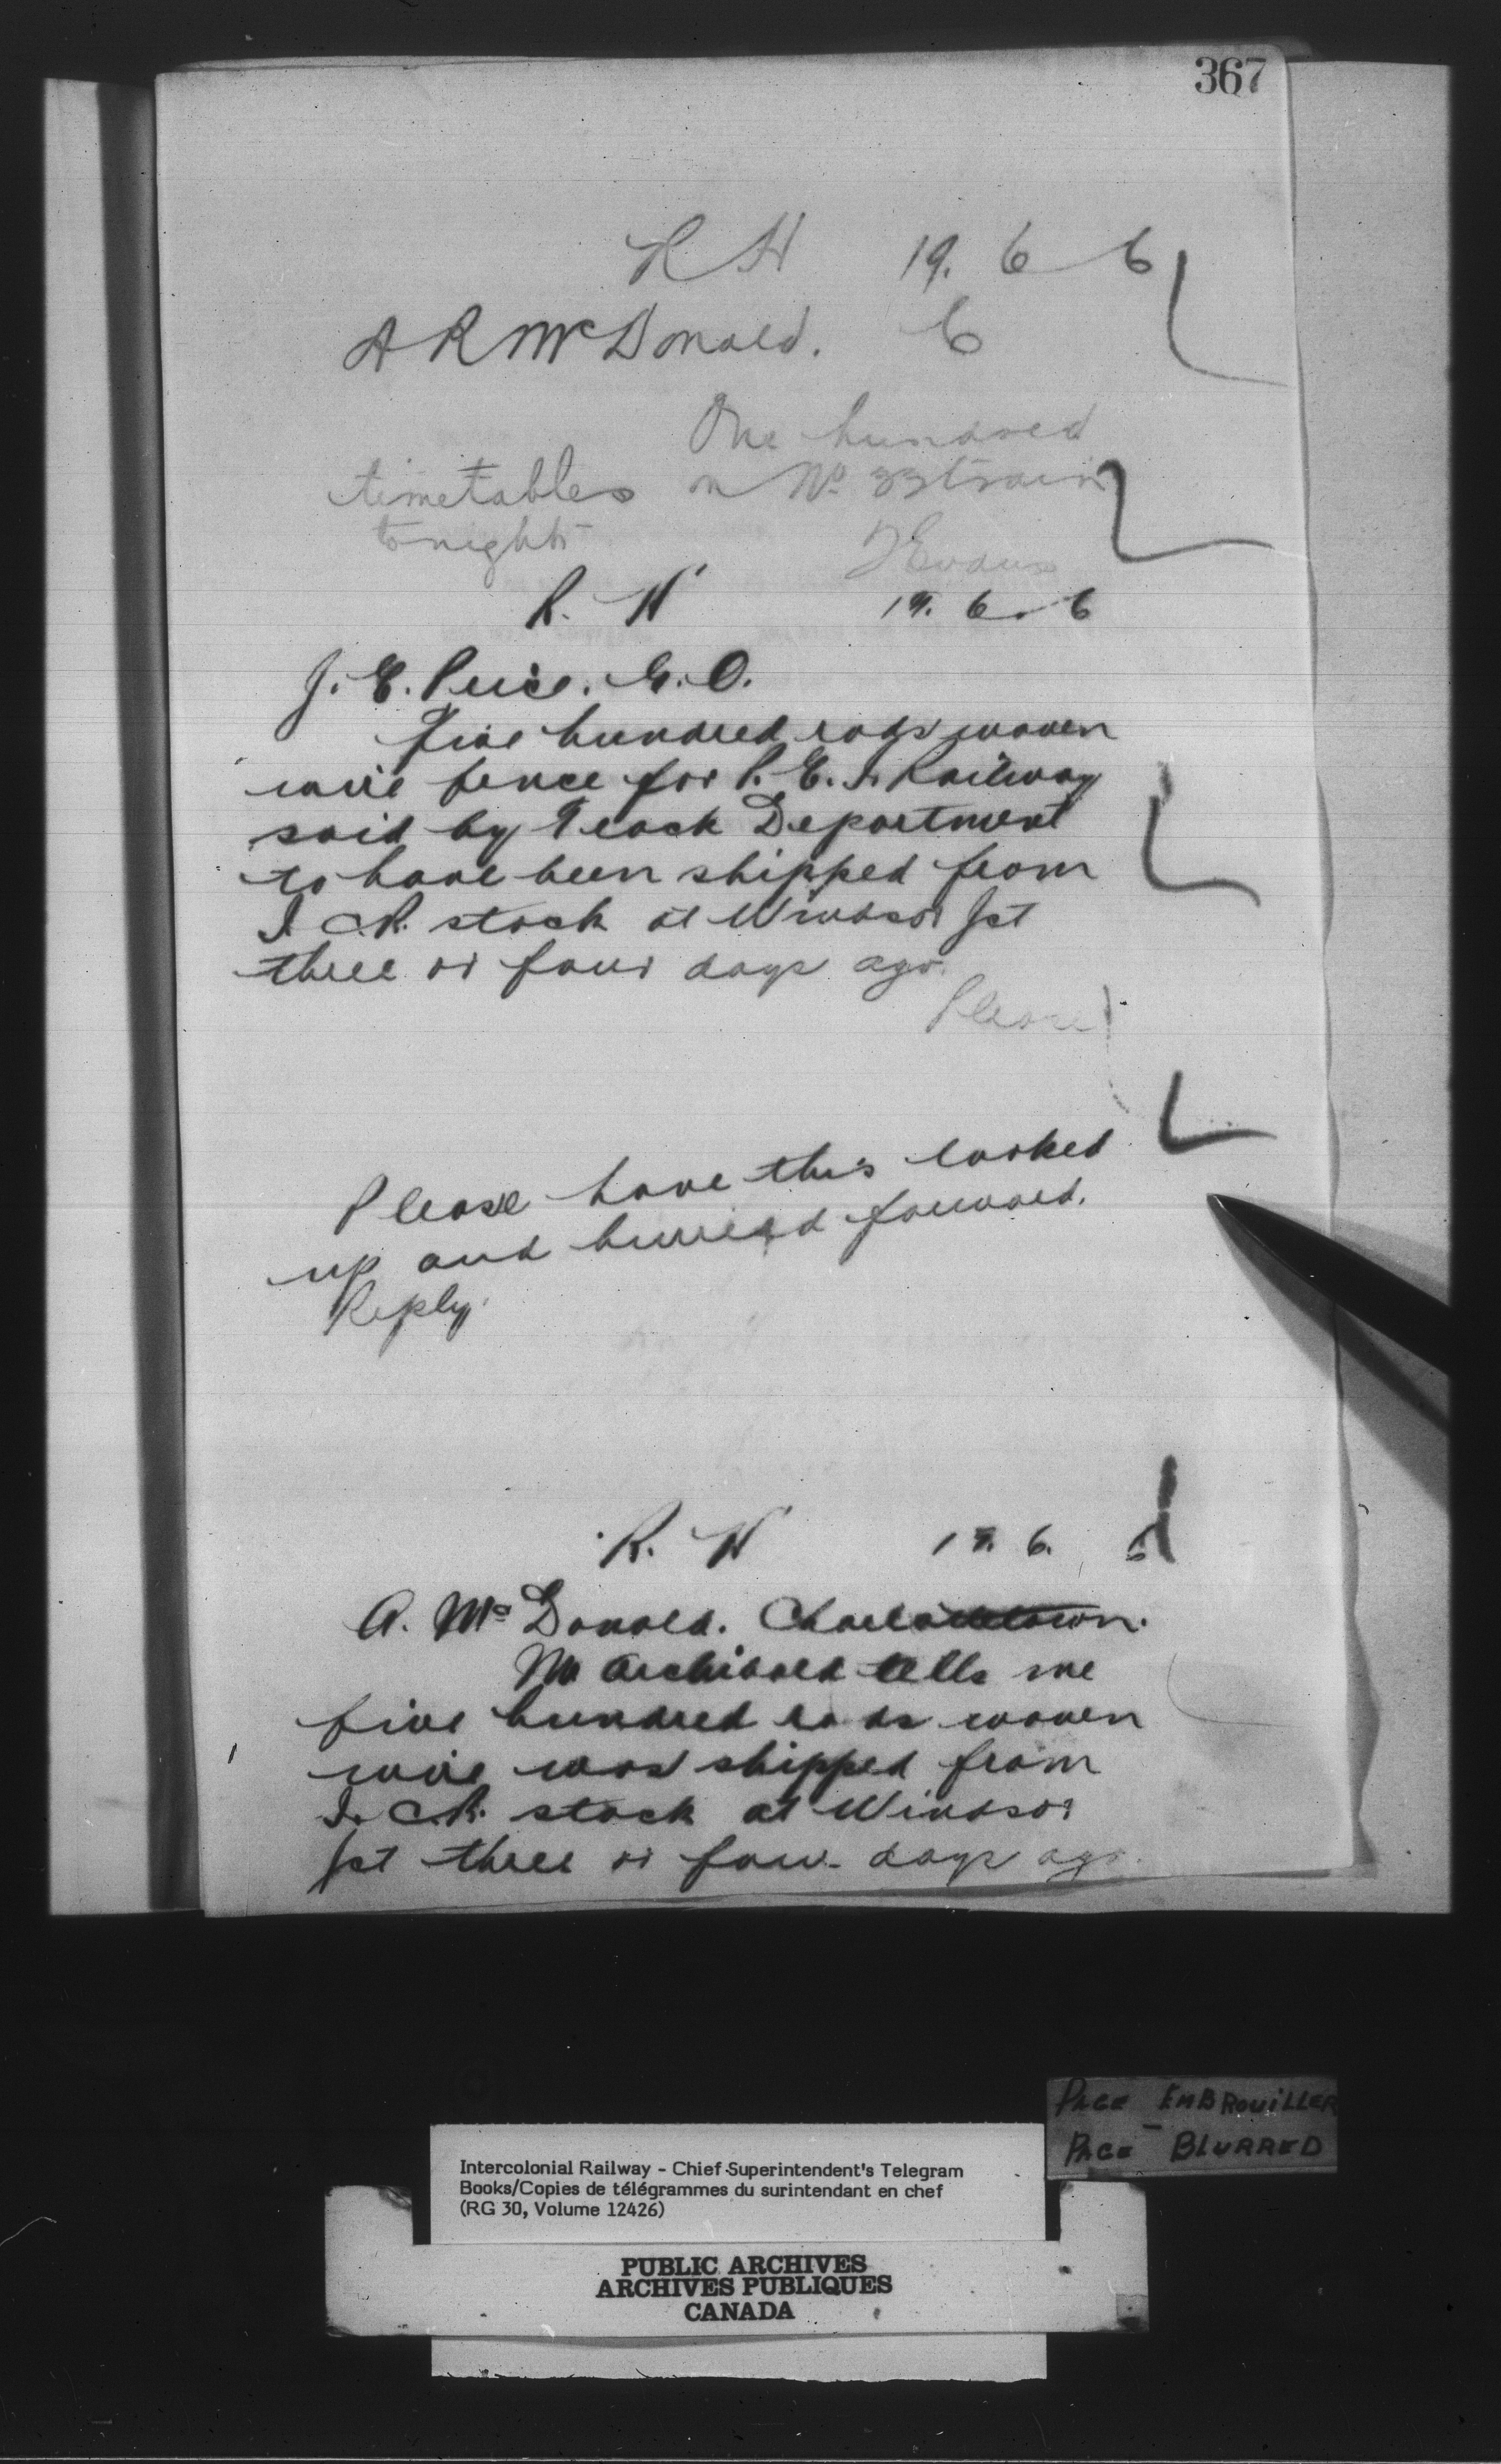 367
R H 19. 6 6
A R McDonald. C
One hundred
timetables on No 33 train
tonight
Evans
R. H 19. 6. 6
J. E. Price. G.O.
Five hundred rods woven
wire fence for P. E. I. Railway
said by Track Department
to have been shipped from
I. C.R. stock at Windsor Jct
three or four days ago.
Please
Please have this looked
up and hurried forward.
Reply.
R. H 19. 6. 6
A. McDonald. Charlottetown.
Mr Archibald tells me
five hundred rods woven
wire was shipped from
I. C.R. stock at Windsor
Jct three or four days ago.
PAGE EMBROUILLER
PAGE BLURRED
Intercolonial Railway - Chief Superintendent's Telegram
Books/Copies de télégrammes du surintendant en chef
(RG 30, Volume 12426)
PUBLIC ARCHIVES
ARCHIVES PUBLIQUES
CANADA